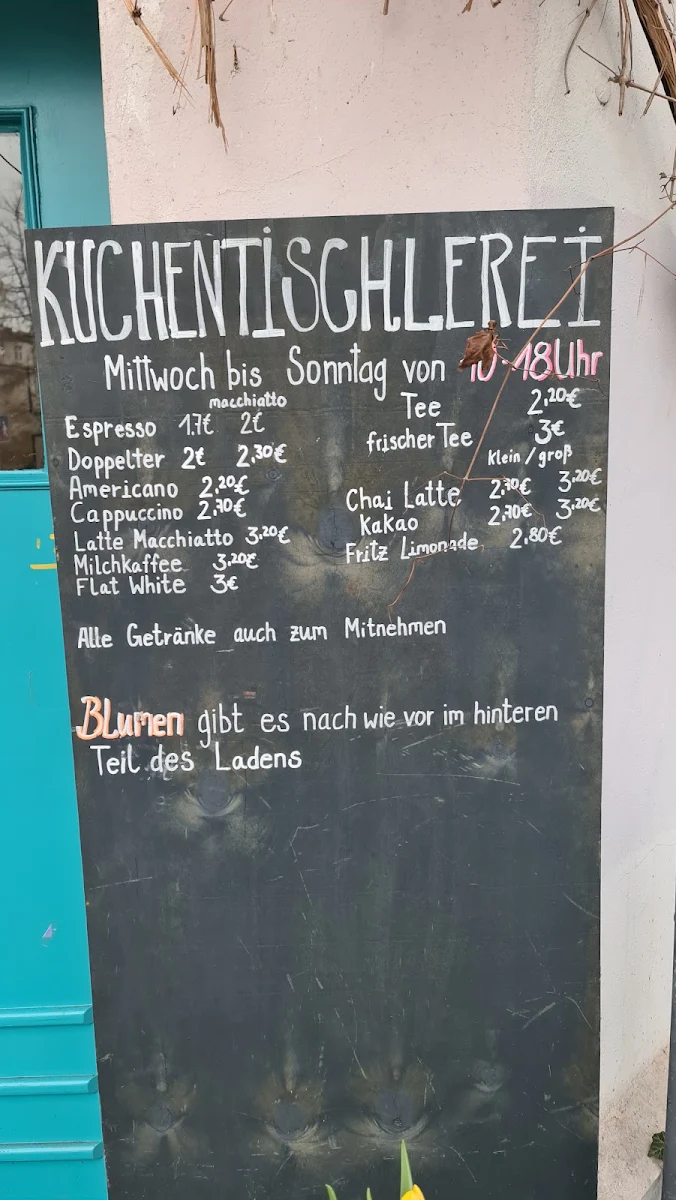 KUCHENTISCHLEREI
Mittwoch bis Sonntag von 10-18Uhr
macchiatto
Espresso 1.7€ 2€
Doppelter 2€ 2,30€
Americano 2,20€
Cappuccino 2,70€
Latte Macchiatto 3,20€
Milchkaffee 3,20€
Flat White 3€
Tee 2,20€
frischer Tee 3€
klein/groß
Chai Latte 2,70€ 3,20€
Kakao 2,70€ 3,20€
Fritz Limonade 2,80€
Alle Getränke auch zum Mitnehmen
BLumen gibt es nach wie vor im hinteren
Teil des Ladens